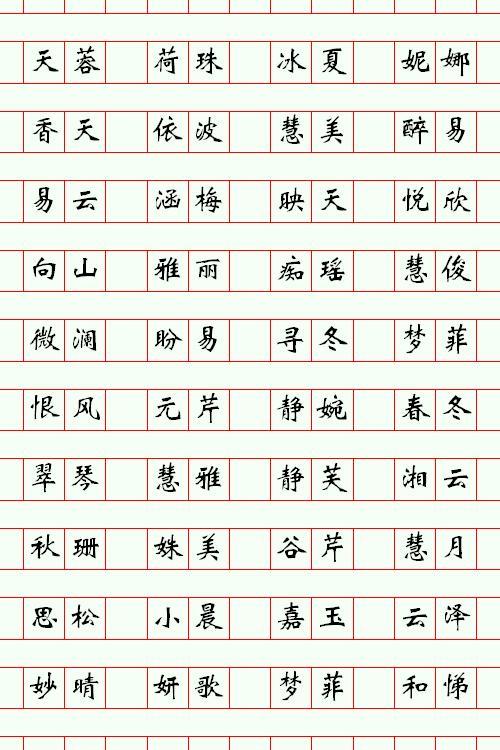 天蓉 荷珠 冰夏 妮娜
香天 依波 慧美 醉易
易云 涵梅 映天 悦欣
向山 雅丽 痴瑶 慧俊
微澜 盼易 寻冬 梦菲
恨风 元芹 静婉 春冬
翠琴 慧雅 静芙 湘云
秋珊 姝美 谷芹 慧月
思松 小晨 嘉玉 云泽
妙晴 妍歌 梦菲 和悌